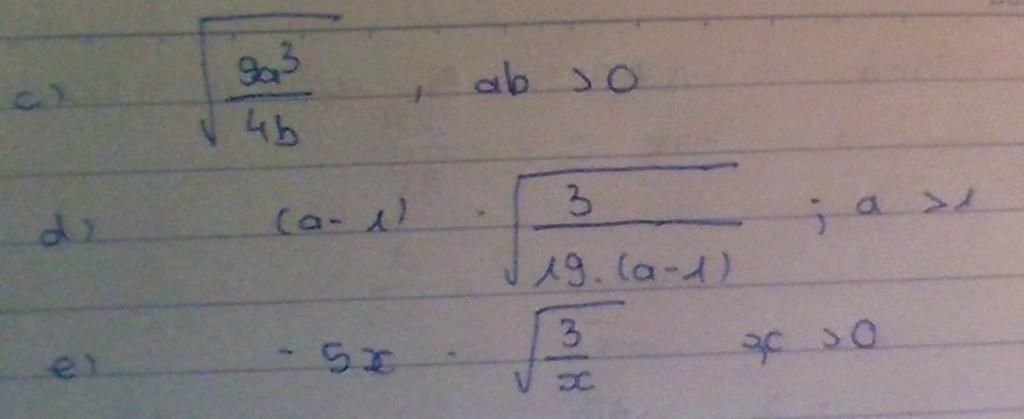 c) √(9a³/4b) , ab > 0
d) (a - 1) · √(3/19.(a-1)) ; a > 1
e) - 5x · √(3/x) x > 0